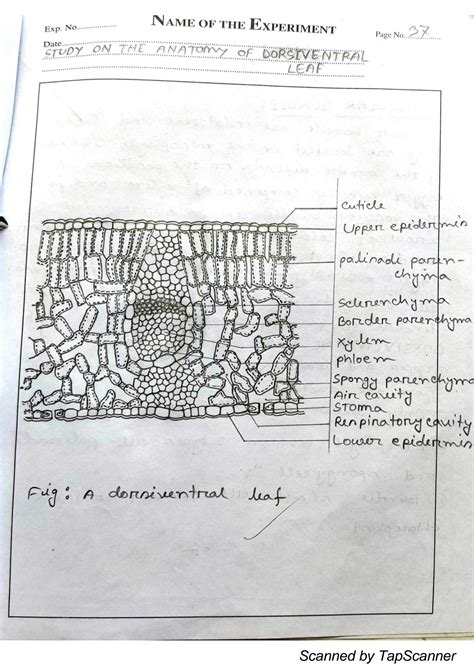 NAME OF THE EXPERIMENT
Exp. No.
Page No. 37
Date
STUDY ON THE ANATOMY OF DORSIVENTRAL
LEAF
Cuticle
Upper epidermis
palisadi paren-
chyma
Sclerenchyma
Border parenchyma
Xylem
phloem
Spongy parenchyma
Air cavity
Stoma
Respiratory cavity
Lower epidermis
Fig: A dorsiventral leaf
Scanned by TapScanner